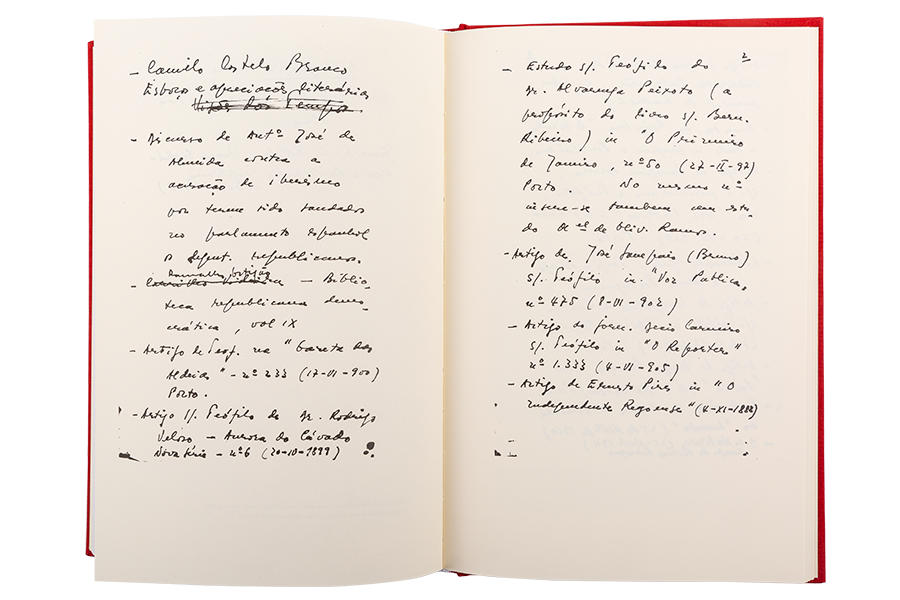 - Camilo Castelo Branco
Esboço e apreciações literárias
Visões dos Tempos
- Discurso de Antº José de
Almeida contra a
acusação de iberismo
por terem sido saudados
no parlamento espanhol
os deput. republicanos.
Ramalho Ortigão
- – Biblio-
teca republicana demo-
crática, vol IX
- Artigo de Teof. na "Gazeta das
Aldeias" - nº 233 (17-VI-900)
Porto.
- Artigo s/. Teófilo de Dr. Rodrigo
Veloso - Aurora do Cávado
Nova Série - nº6 (20-10-1899)
2
- Estudo s/. Teófilo do
Dr. Alvarenga Peixoto (a
propósito do livro s/. Bern.
Ribeiro) in "O Primeiro
de Janeiro, nº 50 (27-II-97)
Porto. No mesmo nº
insere-se tambem um estu-
do de Oliv. Ramos.
- Artigo de José Sampaio (Bruno)
s/. Teófilo in "Voz Publica,
nº 475 (8-VI-902)
- Artigo do jorn. Carneiro
s/. Teófilo in "O Reporter"
nº 1.333 (4-VI-905)
- Artigo de Ernesto Pires in "O
Independente Regoense" (4-XI-1888)